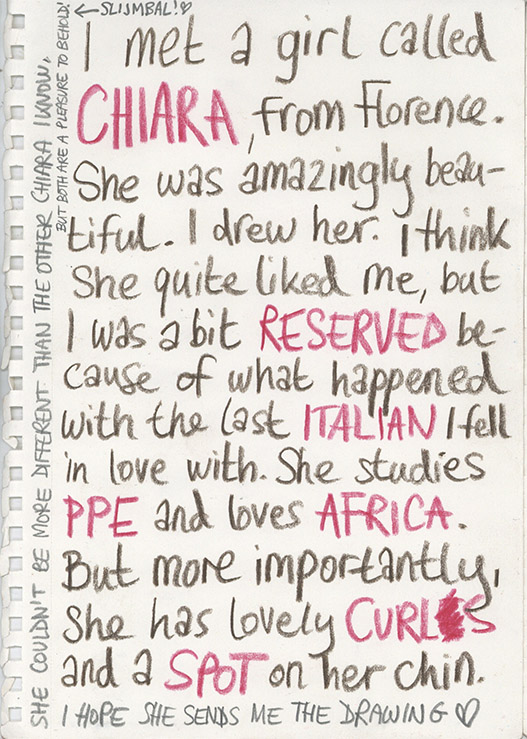 ←SLIJMBAL!♡
I met a girl called
CHIARA, from Florence.
She was amazingly beau-
tiful. I drew her. I think
She quite liked me, but
I was a bit RESERVED be-
cause of what happened
with the last ITALIAN I fell
in love with. She studies
PPE and loves AFRICA.
But more importantly,
She has lovely CURLS
and a SPOT on her chin.
I HOPE SHE SENDS ME THE DRAWING ♡
SHE COULDN'T BE MORE DIFFERENT THAN THE OTHER CHIARA I KNOW,
BUT BOTH ARE A PLEASURE TO BEHOLD!